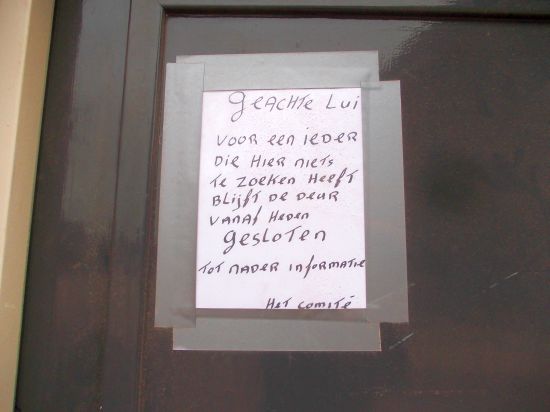 Geachte Lui
voor een ieder
die hier niets
te zoeken heeft
blijft de deur
vanaf heden
gesloten
tot nader informatie
Het comité